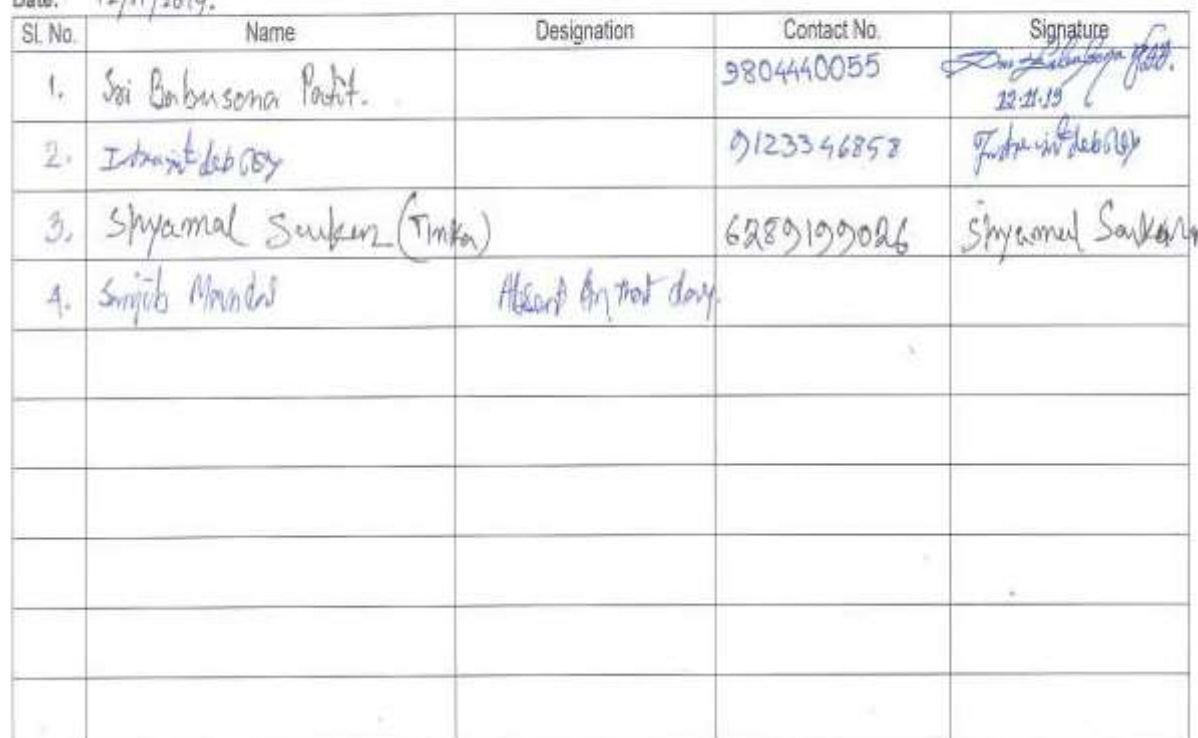 Date: 12/11/2019.
Sl. No. Name Designation Contact No. Signature
1. Sri Babusona Patit. 9804440055
22.11.19
2. 9123346858
3. Shyamal Sarkar (Tinka) 6289199026 Shyamal Sarkar
4. Sanjib Mandal Absent on that day.